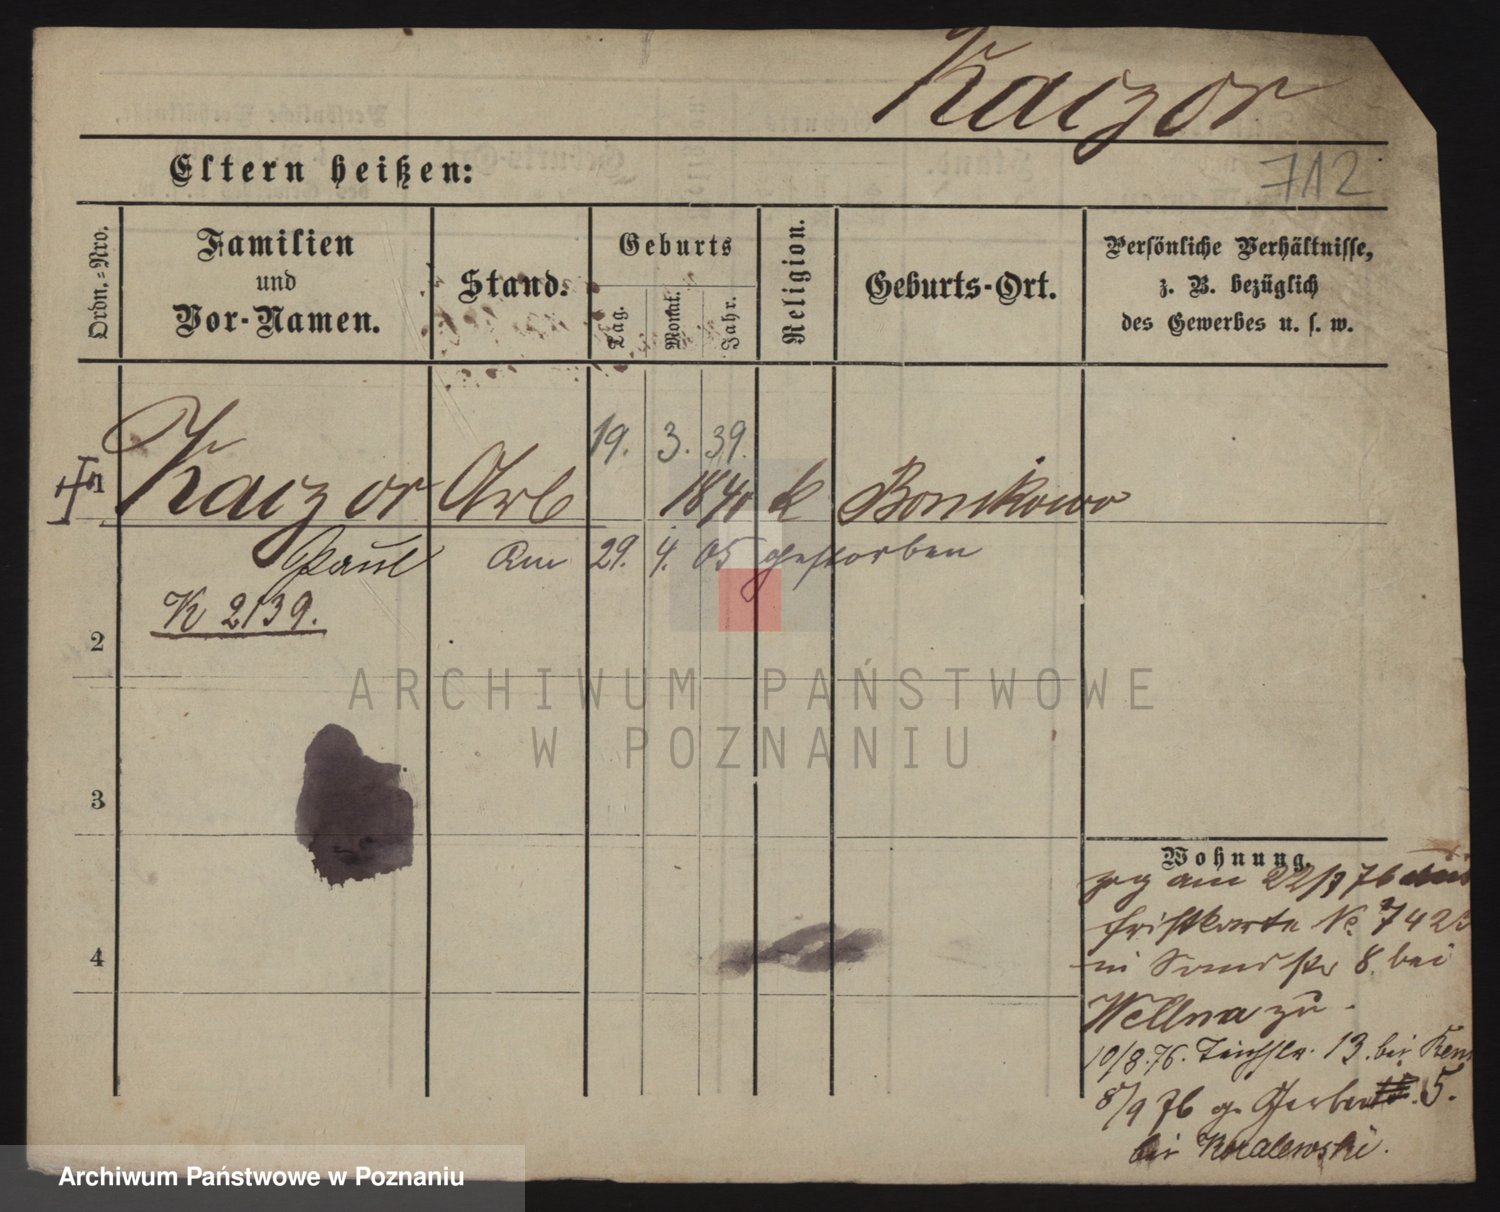 Kaczor
712
Eltern heißen:
Ordn.=Nro.
Familien
und
Vor-Namen.
Stand.
Geburts
Tag.
Monat.
Jahr.
Religion.
Geburts-Ort.
Persönliche Verhältnisse,
z. B. bezüglich
des Gewerbes u. s. w.
19. 3. 39.
1 Kaczor Arb 1840 k Bonikowo
Paul Am 29. 4. 05 gestorben
K 2139.
2
3
4
ARCHIWUM PAŃSTWOWE
W POZNANIU
Wohnung.
zog am 22/7 76
No 7423
in Sandstr 8. bei
Wellna zu.
10/8. 76. 13. bei
8/9 76 g. Gerberst. 5.
bei Kowalewski.
Archiwum Państwowe w Poznaniu